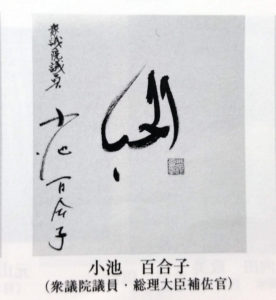 衆議院議員
小池百合子
小池　百合子
（衆議院議員・総理大臣補佐官）